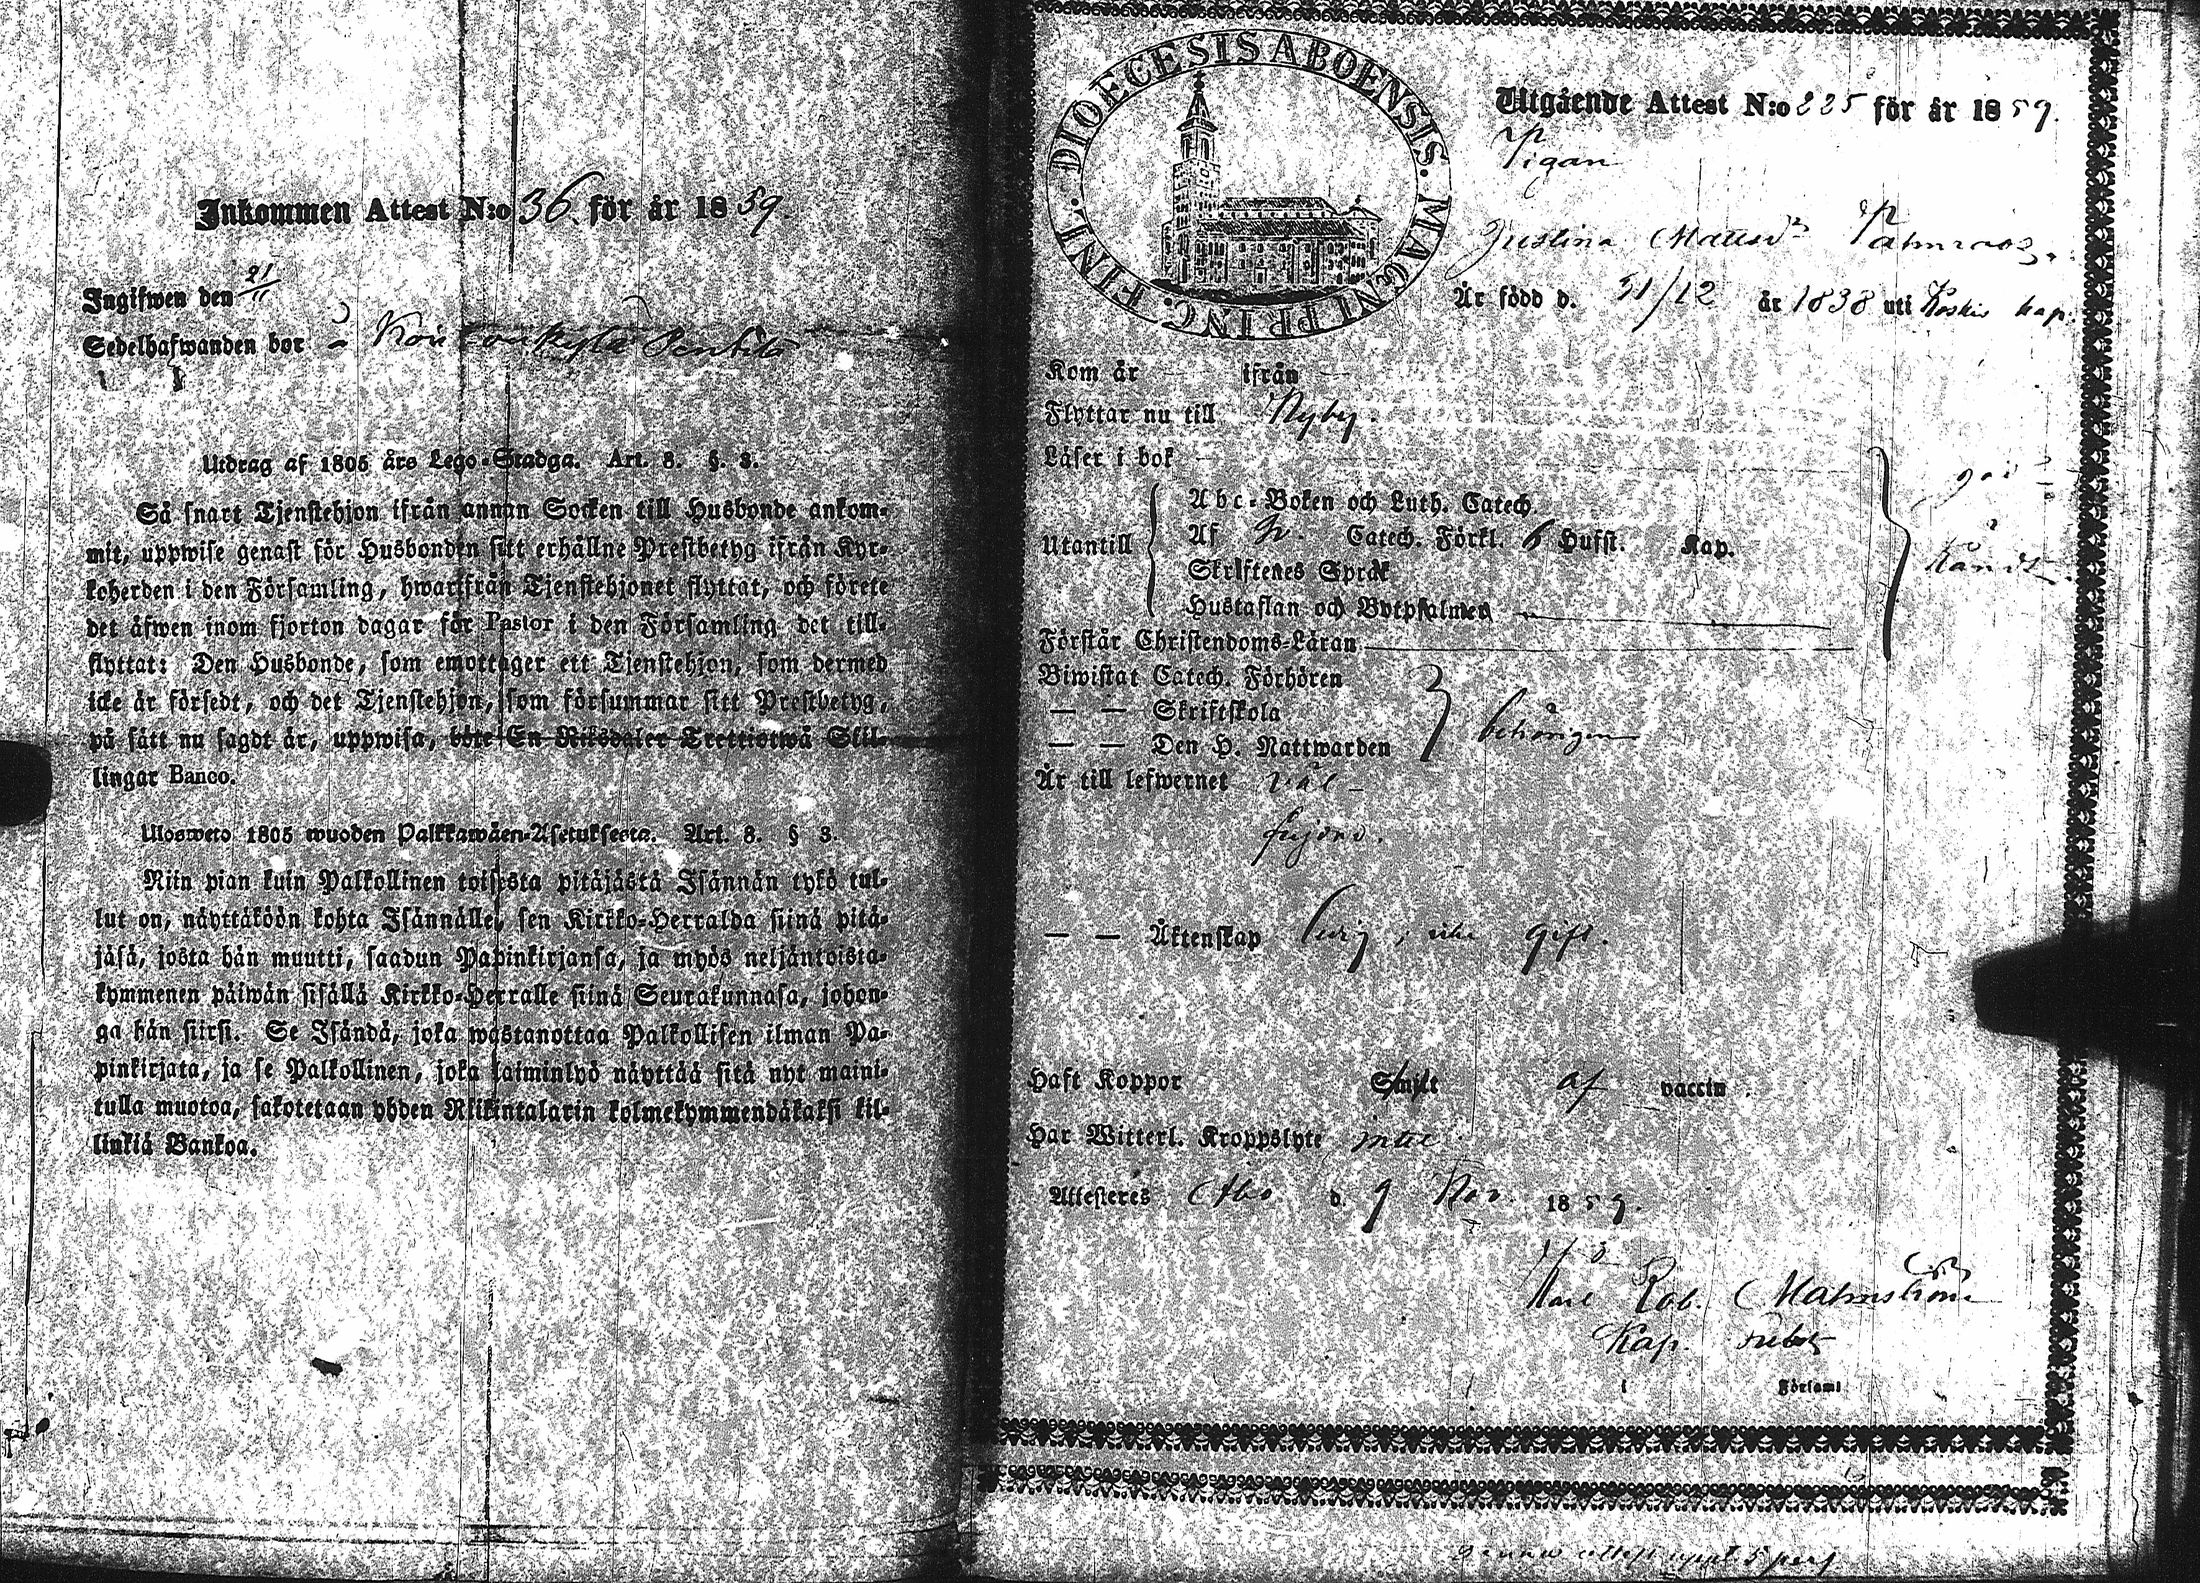 Inkommen Attest N:o 36 för år 1859.
Ingifwen den 21/11
Sedelhafwanden bor å
Utdrag af 1805 års Lego-Stadga. Art. 8. §. 3.
Så snart Tjenstehjon ifrån annan Socken till Husbonde ankom-
mit, uppwise genast för Husbonden sitt erhållne Prestbetyg ifrån Kyr-
koherden i den Församling, hwarifrån Tjenstehjonet flyttat, och förete
det äfwen inom fjorton dagar för Pastor i den Församling det till-
flyttat: Den Husbonde, som emottager ett Tjenstehjon, som dermed
icke är försedt, och det Tjenstehjon, som försummar sitt Prestbetyg,
på sätt nu sagdt är, uppwisa, böte En Riksdaler Trettiotwå Skil-
lingar Banco.
Ulosweto 1805 wuoden Palkkawäen-Asetuksesta. Art. 8. § 3.
Niin pian kuin Palkollinen toisesta pitäjästä Isännän tykö tul-
lut on, näyttäköön kohta Isännälle, sen Kirkko-Herralda siinä pitä-
jäsä, josta hän muutti, saadun Papinkirjansa, ja myös neljäntoista-
kymmenen päiwän sisällä Kirkko-Herralle siinä Seurakunnasa, johon-
ga hän siirsi. Se Isändä, joka wastanottaa Palkollisen ilman Pa-
pinkirjata, ja se Palkollinen, joka laiminlyö näyttää sitä nyt maini-
tulla muotoa, sakotetaan yhden Riikintalarin kolmekymmendäkaksi kil-
linkiä Bankoa.
FINL. DIOECESIS ABOENSIS. MAGNI PRINC.
Utgående Attest N:o 225 för år 1859.
Pigan
Justina Mattsdr Palmroos.
Är född d. 31/12 år 1838 uti Koskis kap.
Kom år — ifrån —
Flyttar nu till Nyby.
Läser i bok
Utantill
Abc-Boken och Luth. Catech.
Af Catech. Förkl. 6 Hufst. Kap.
Skriftenes Språk
Hustaflan och Botpsalmen
Förstår Christendoms-Läran
Biwistat Catech. Förhören
— — Skriftskola
— — Den H. Nattwarden
behörigen
Är till lefwernet väl-
frejdad.
— — Äktenskap ledig, icke gift.
Haft Koppor Smitt af vaccin.
Har Witterl. Kroppslyte intet
Attesteres Åbo d. 9 Nov 1859.
Karl Rob. Malmström
Kap. subst
i Församl